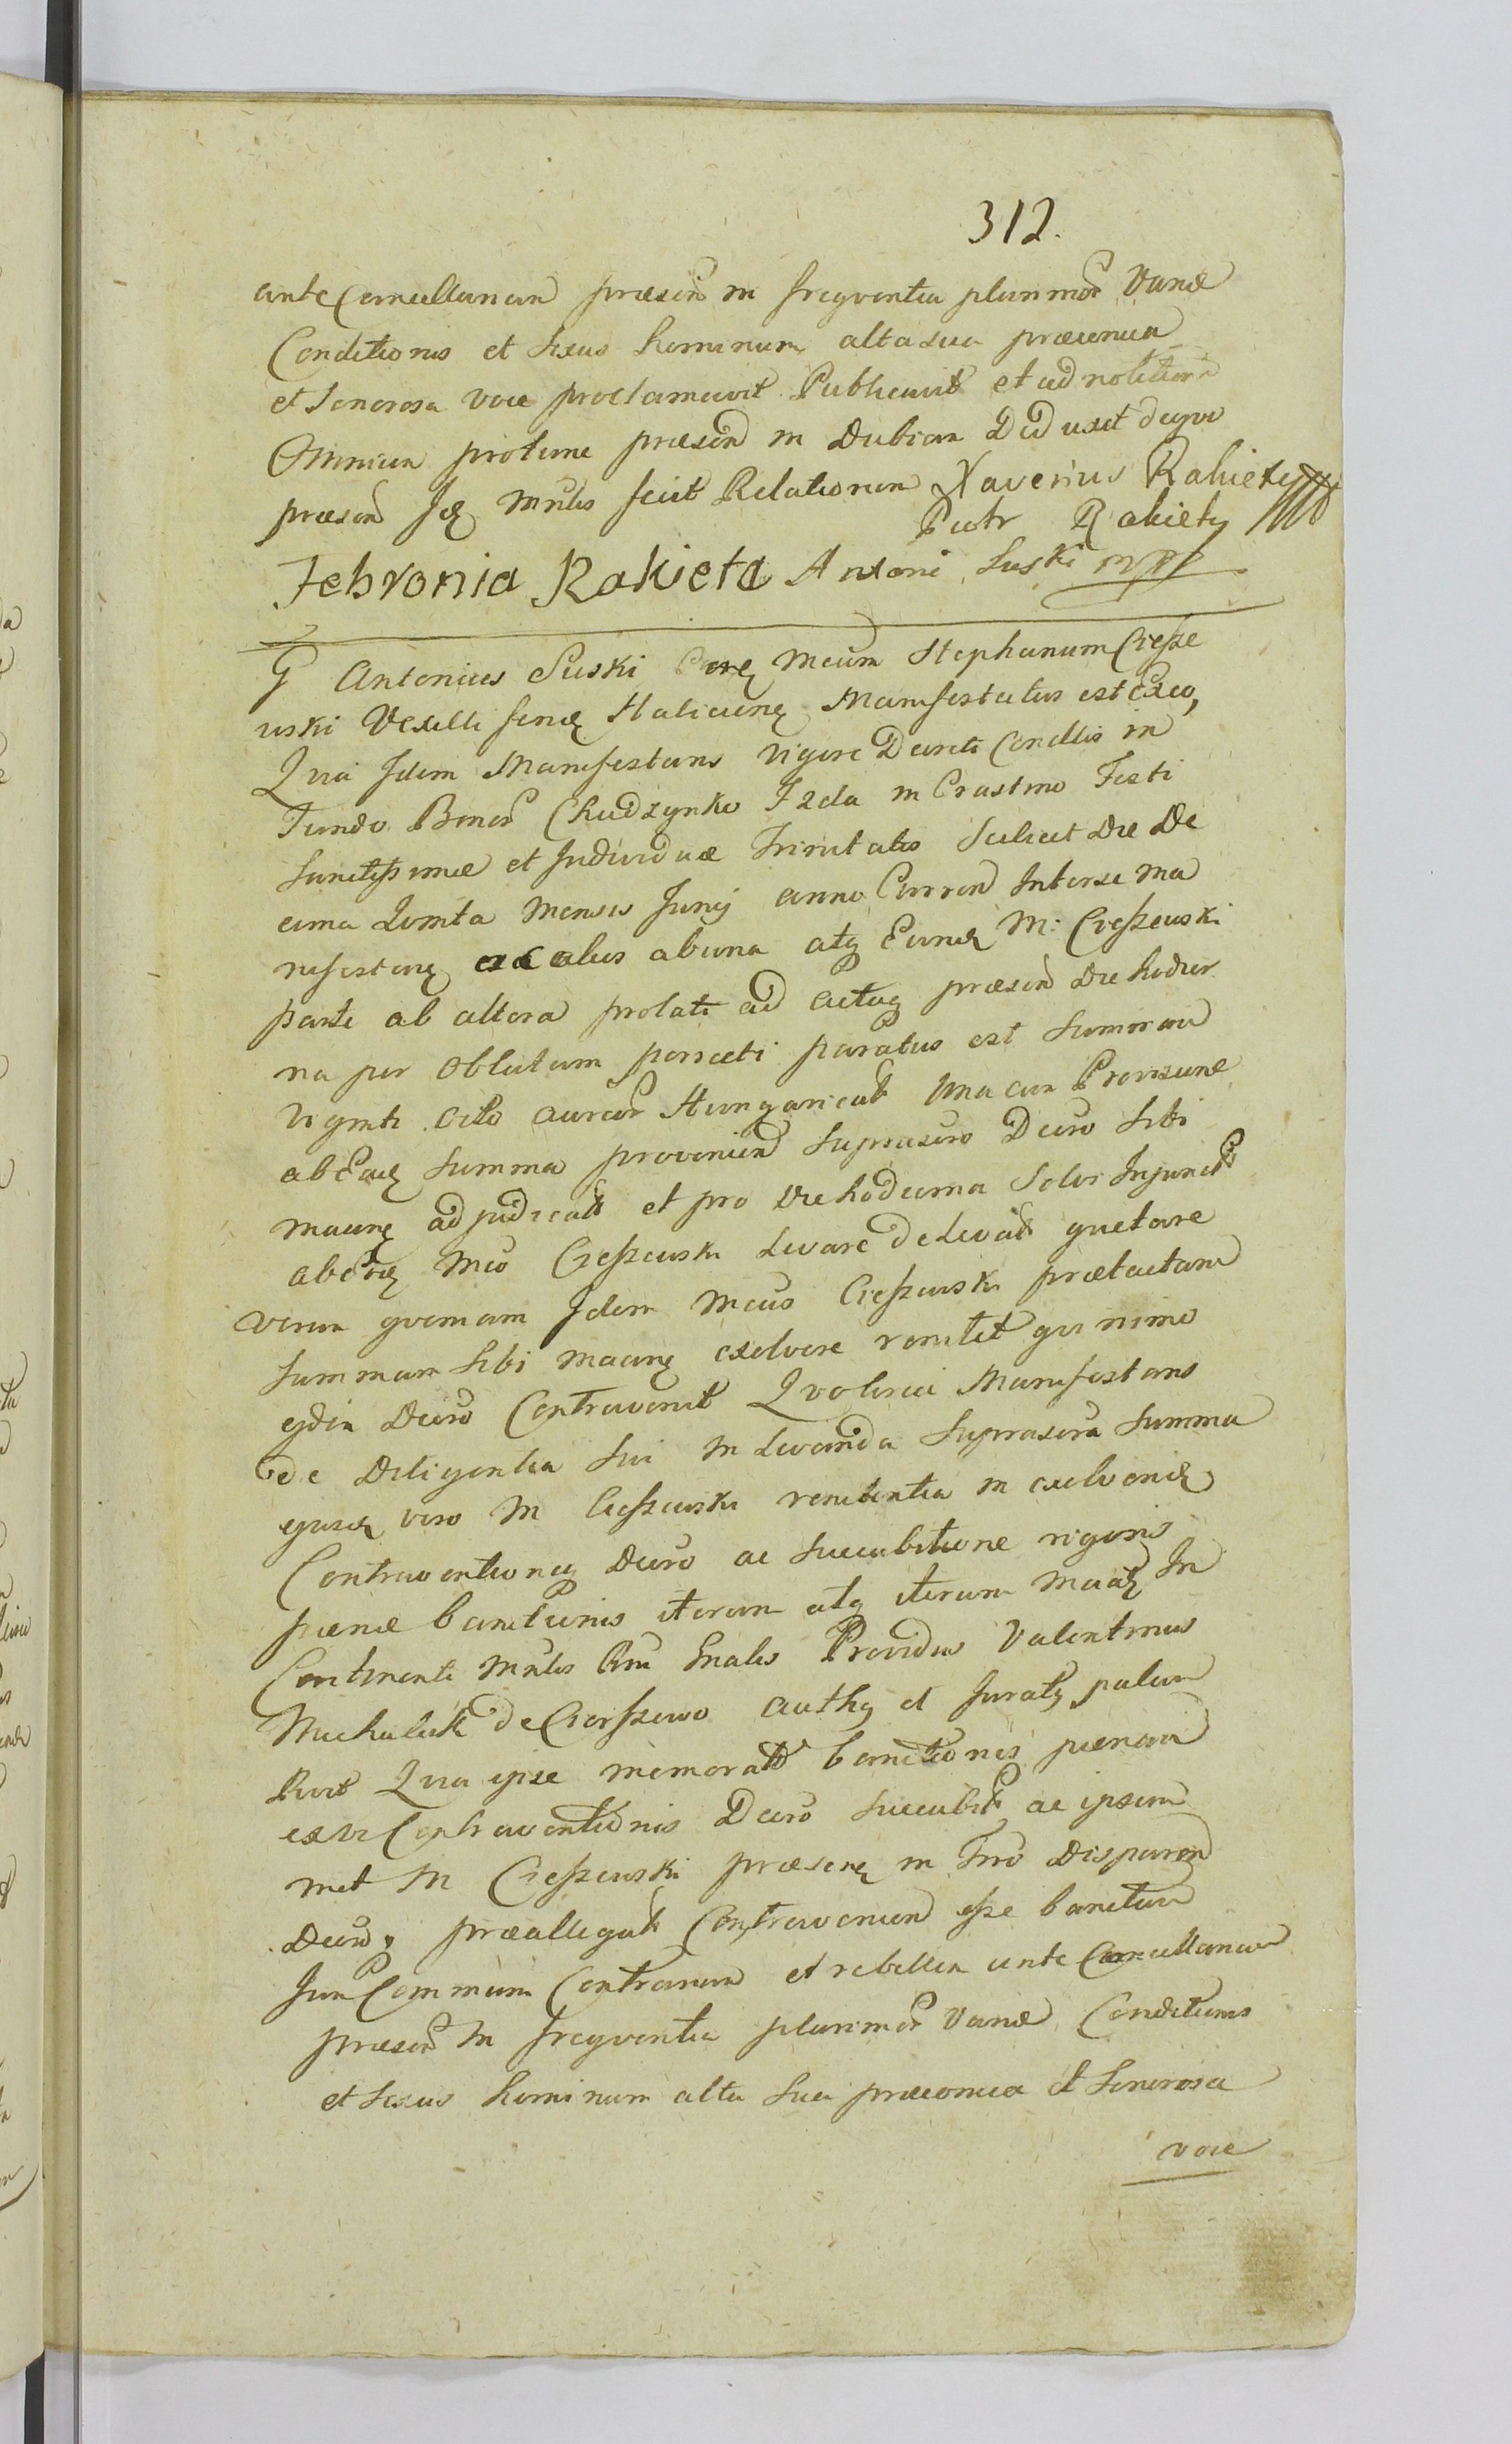 312.
ante Cancellariam præsen in freqventia plurimor Variæ
Conditionis et sexus hominum alta sua præconica
et sonorosa voce proclamavit Publicavit et ad notitiam
Omnium protunc præsen in dubiam Deduxit deqve
præsen Idq Mnlis fecit Relationem Xaverius Rakiety
Piotr Rakiety
Febronia Rakieta Antoni Suski mpp
G Antonius Suski Meum Stephanum Ciesze
wski Vexilli feriq Haliciens Manifestatus est Ex eo,
Qvia Idem Manifestans vigore Decreti Condllis in
Fundo Bonor Chudzynko Izda in Crastino Festi
Sanctissimæ et Individuæ Trinitatis Scilicet Die De
cima Qvinta Mensis Junij anno Curren Inter se Ma
nifestanq ex alus ab una atq Eundq M: Cieszewski
parte ab altera prolati ad actaq præsen die hodier
na per Oblatam porrecti paratus est Summam
viginti octo aureor Hungaricab Una cum Provisione
ab Eadq Summa provenien Suprascro Decro Sibi
Maenq adjudicatt et pro die hodierna Solvi Injunctt
ab Eodq Mco Cieszewski Levare deLevatt qvetare
verum qvoniam Idem Mcus Cieszewski prætactam
Summam Sibi Maenq exolvere renitet qvinimo
eqdem Decro Contravenit Qvo circa Manifestans
de Diligentia Sui in Levanda Suprascra Summa
ejusdq vero M Cieszewski renitentia in exolvendq
Contraventioneq Decro ac Succubitione rigoris
pænæ bannitionis iterum atq iterum Maatq In
Continenti Mnlis Rni Gnalis Providus Valentinus
Michaluk de Cierszewo authq et Juratq palam
Rvit Qvia ipse memoratt bannitionis pænam
ex vi Contraventionis Decro Succubitt ac ipsum
met M Cieszewski præsenq in Trio Disparen
Decro, præallegatt Contravenien esse bannitum
Juri Commúni Contrarium et rebellem ante Cancellariam
præsen in freqventia plurimor Variæ Conditionis
et Sexus hominum alta Sua præconica et Sonorosa
voce